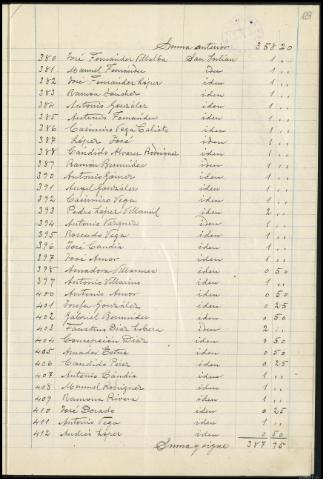 Suma anterior 358 20
380 José Fernández Villalba San Julian 1 ..
381 Manuel Fernández iden 1 ..
382 José Fernández López iden 1 ..
383 Ramón Sánchez iden 1 ..
384 Antonio González iden 1 ..
385 Antonio Fernández iden 1 ..
386 Casimiro Vega Calixto iden 1 ..
387 López José iden 1 ..
388 Candido Alvarez Rodríguez iden 1 ..
389 Ramón Bermúdez iden 1 ..
390 Antonio Gómez iden 1 ..
391 Angel González iden 1 ..
392 Casimiro Vega iden 1 ..
393 Pedro López Villamil iden 2 ..
394 Antonio iden 1 ..
395 Rosendo Vega iden 1 ..
396 José Candia iden 1 ..
397 José Amor iden 1 ..
398 Amadora iden 0 50
399 Antonio iden 1 ..
400 Antonio Amor iden 0 50
401 Josefa González iden 0 25
402 Gabriel Bermúdez iden 0 50
403 Faustino Díaz Lobera iden 2 ..
404 Concepción Díaz iden 0 50
405 Amador iden 0 50
406 Candido Pérez iden 0 25
407 Antonio Candia iden 1 ..
408 Manuel Rodríguez iden 1 ..
409 Ramona Rivera iden 1 ..
410 José Dorado iden 0 25
411 Antonio Vega iden 1 ..
412 Andrés López iden 0 50
Suma y sigue 387 95